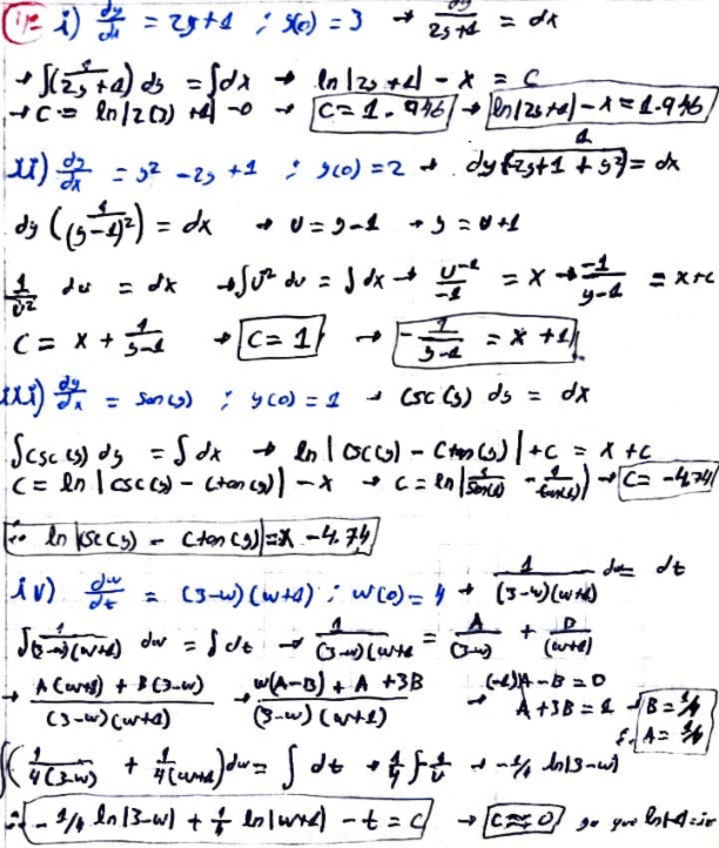 i) dy/dx = 2y+1 ; y(0) = 3 → dy/2y+1 = dx
→ ∫(1/2y+1) dy = ∫dx → ln|2y+1| - x = C
→ C = ln|2(3)+1| - 0 → C = 1.946 → ln|2y+1| - x = 1.946
ii) dy/dx = y² - 2y + 1 ; y(0) = 2 → = dx
dy (1/(y-1)²) = dx → u = y-1 → y = u+1
1/u² du = dx → ∫u⁻² du = ∫dx → u⁻¹/-1 = x → -1/y-1 = x+c
C = x + 1/y-1 → C = 1 → -1/y-1 = x + 1
iii) dy/dx = sen(y) ; y(0) = 1 → csc(y) dy = dx
∫csc(y) dy = ∫dx → ln|csc(y) - ctan(y)| + c = x + c
C = ln|csc(y) - ctan(y)| - x → C = ln|1/sen(1) - 1/tan(1)| → C = -4.74
∴ ln|csc(y) - ctan(y)| = x - 4.74
iv) dw/dt = (3-w)(w+1) ; w(0) = 4 → 1/(3-w)(w+1) dw = dt
∫1/(3-w)(w+1) dw = ∫dt → 1/(3-w)(w+1 = A/(3-w) + B/(w+1)
→ A(w+1) + B(3-w)/(3-w)(w+1) → w(A-B) + A + 3B/(3-w)(w+1) → (-1)A - B = 0
A + 3B = 1 → B = 1/4
A = 1/4
∫(1/4(3-w) + 1/4(w+1)) dw = ∫dt → 1/4 ∫-1/u → -1/4 ln|3-w|
∴ -1/4 ln|3-w| + 1/4 ln|w+1| - t = C → ya que